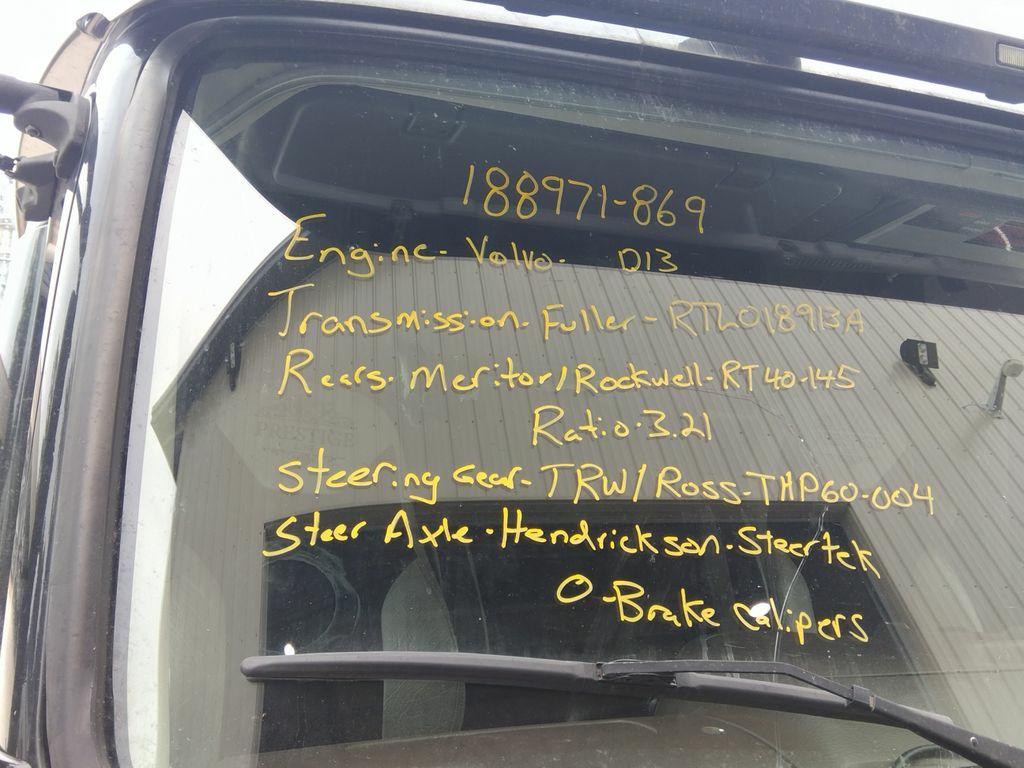 188971-869
Engine- Volvo- D13
Transmission- Fuller- RTLO18913A
Rears- Meritor/Rockwell-RT40-145
Ratio-3.21
Steering Gear- TRW/Ross-THP60-004
Steer Axle-Hendrickson-Steertek
0-Brake calipers
PRESTIGE